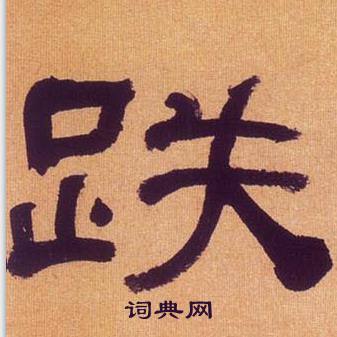 跌
词典网